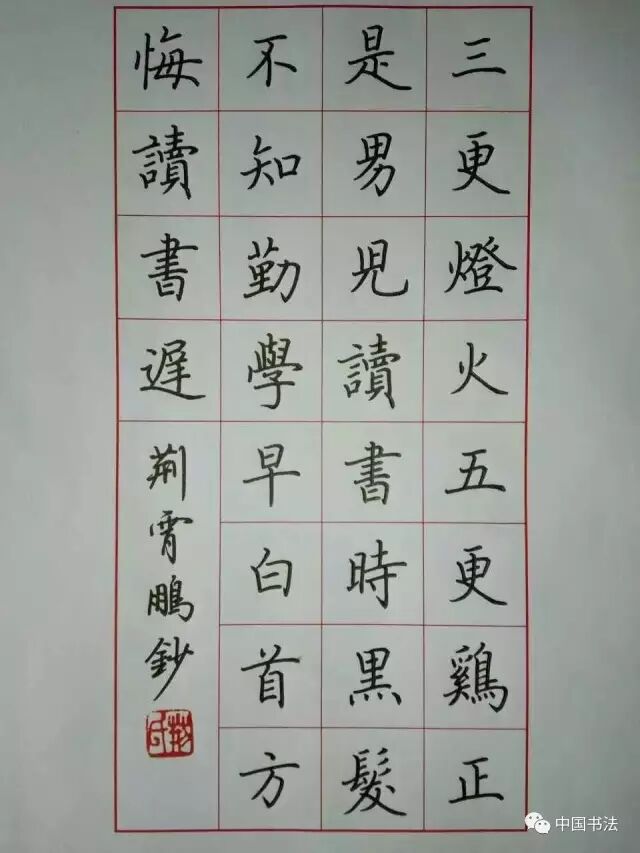 三更燈火五更鷄正
是男兒讀書時黒髮
不知勤學早白首方
悔讀書遲
荊霄鵬鈔
中国书法